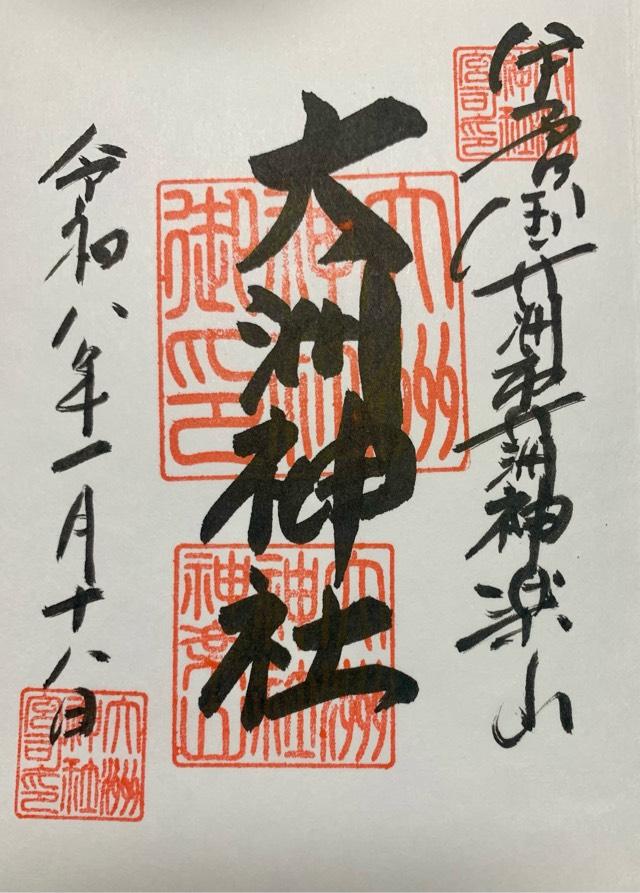 伊予国大洲市大洲神楽山
大洲神社
令和八年一月十八日
大洲
神社
宮司印
大洲
神社
御印
大洲
神社
神楽山
大洲
神社
宮司印